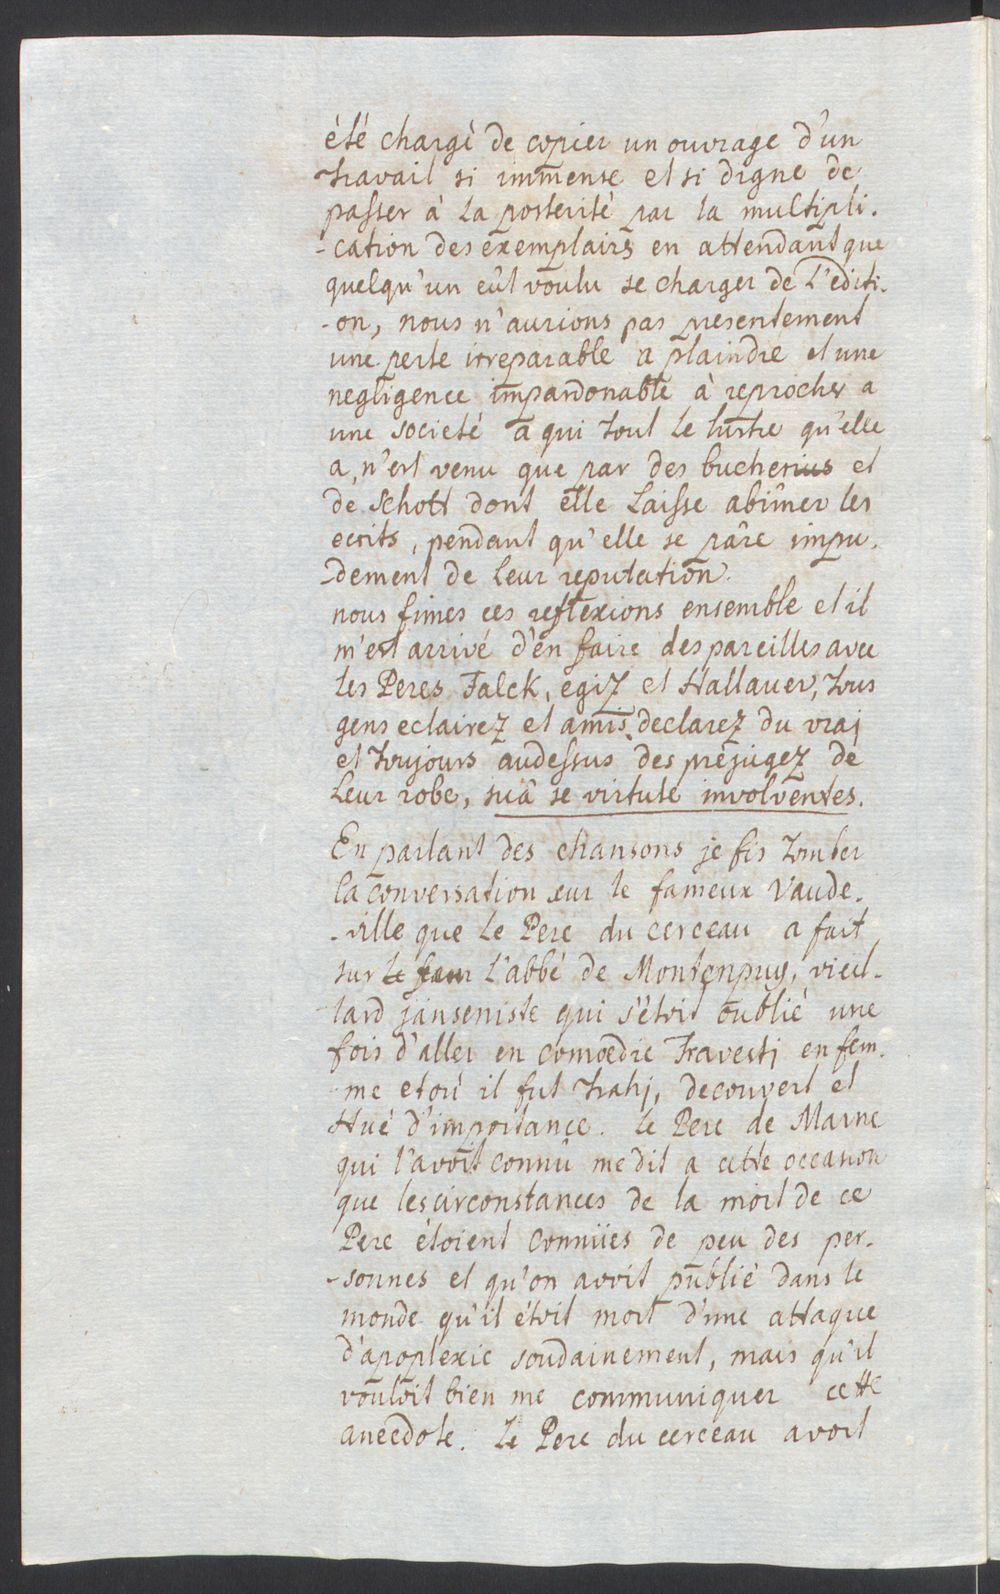 été chargé de copier un ouvrage d'un
travail si immense et si digne de
passer à la posterité par la multipli.
-cation des exemplairs en attendant que
quelqu'un eût voulu se charger de l'editi.
-on, nous n'aurions pas presentement
une perte irreparable a plaindre et une
negligence impardonable à reprocher a
une societé a qui tout le lustre qu'elle
a, n'est venu que par des bucherius et
de Schott dont elle laisse abîmer les
ecrits, pendant qu'elle se pâre impu.
-dement de leur reputation.
nous fimes ces reflexions ensemble et il
m'est arrivé d'en faire des pareilles avec
les Peres Falck, egiz et Hallauer, tous
gens eclairez et amis declarez du vraj
et toujours audessus des prejugez de
leur robe, suâ se virtute involventes.
En parlant des chansons je fis tomber
la conversation sur le fameux Vaude.
-ville que le Pere du cerceau a fait
sur le l'abbé de Montenpuy, vieil-
lard janseniste qui s'étoit oublié une
fois d'aller en comœdie travestj en fem.
-me etoù il fut trahj, decouvert et
Hué d'importance. le Pere de Marne
qui l'avoit connû me dit a cette occasion
que les circonstances de la mort de ce
Pere étoient connües de peu des per.
-sonnes et qu'on avoit publié dans le
monde qu'il étoit mort d'une attaque
d'apoplexie soudainement, mais qu'il
vouloit bien me communiquer cette
anecdote. Le Pere du cerceau avoit